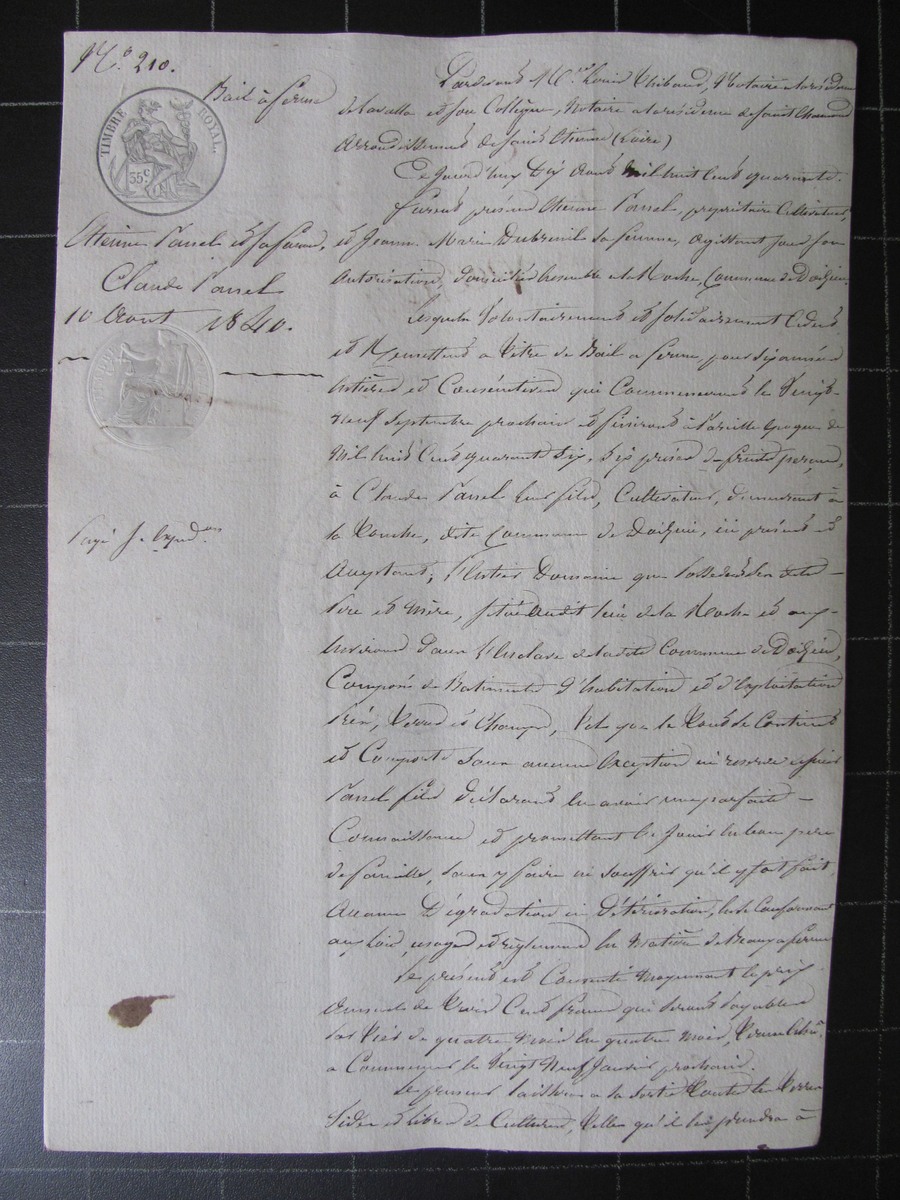 N.o 210.
Bail à ferme
TIMBRE ROYAL.
35c
Etienne Passel et sa femme,
Claude Passel
10 Aout 1840.
Payé
Pardevant M.e Louis Thibaud, Notaire à la résidence
de Lavalla et son Collègue, Notaire a la résidence de Saint Chamond
Arrondissement de Saint Etienne (Loire)
Ce jourd'huy dix Aout mil huit Cent quarante.
Furent présents Etienne Passel, propriétaire Cultivateur,
et Jeanne Marie Dubreuil sa femme, agissant sous son
Autorisation, domiciliés ensemble à la Roche, Commune de Doizieu.
Lesquels Volontairement et solidairement Cèdent
et Remettent a titre de Bail a ferme, pour six années
Entières et Consécutives qui Commenceront le Vingt-
neuf Septembre prochain et finiront à Pareille époque de
Mil huit Cent quarante Six, Six prises de fruits perçues,
à Claude Passel leur fils, Cultivateur, demeurant à
la Roche, dite Commune de Doizieu, ici présent et
Acceptant; l'Entier Domaine que Possèdent les dits
Père et Mère, situé audit lieu de la Roche et aux
Environs dans l'Enclave de ladite Commune de Doizieu,
Composé de Batiments d'habitation et d'Exploitation
Prés, Terres et Champs, tels que le tout se Contient
et Comporte sans aucune Exception ni réserve
Passel fils déclarant en avoir une parfaite
Connaissance et promettant de Jouir en bon père
de famille, sans y faire ni souffrir qu'il y soit fait,
Aucune Dégradation ni Détérioration, et de se Conformer
aux lois, usages et règlements en Matière de Beaux a ferme
Le présent est Consenti moyennant le prix
Annuel de Trois Cents francs qui seront payables
Par tiers de quatre mois en quatre mois, Terme Echu,
a Commencer le Vingt Neuf Janvier prochain.
Le preneur laissera a sa sortie toutes les Terres
Vides et Libres de Cultures, telles qu'il les prendra à